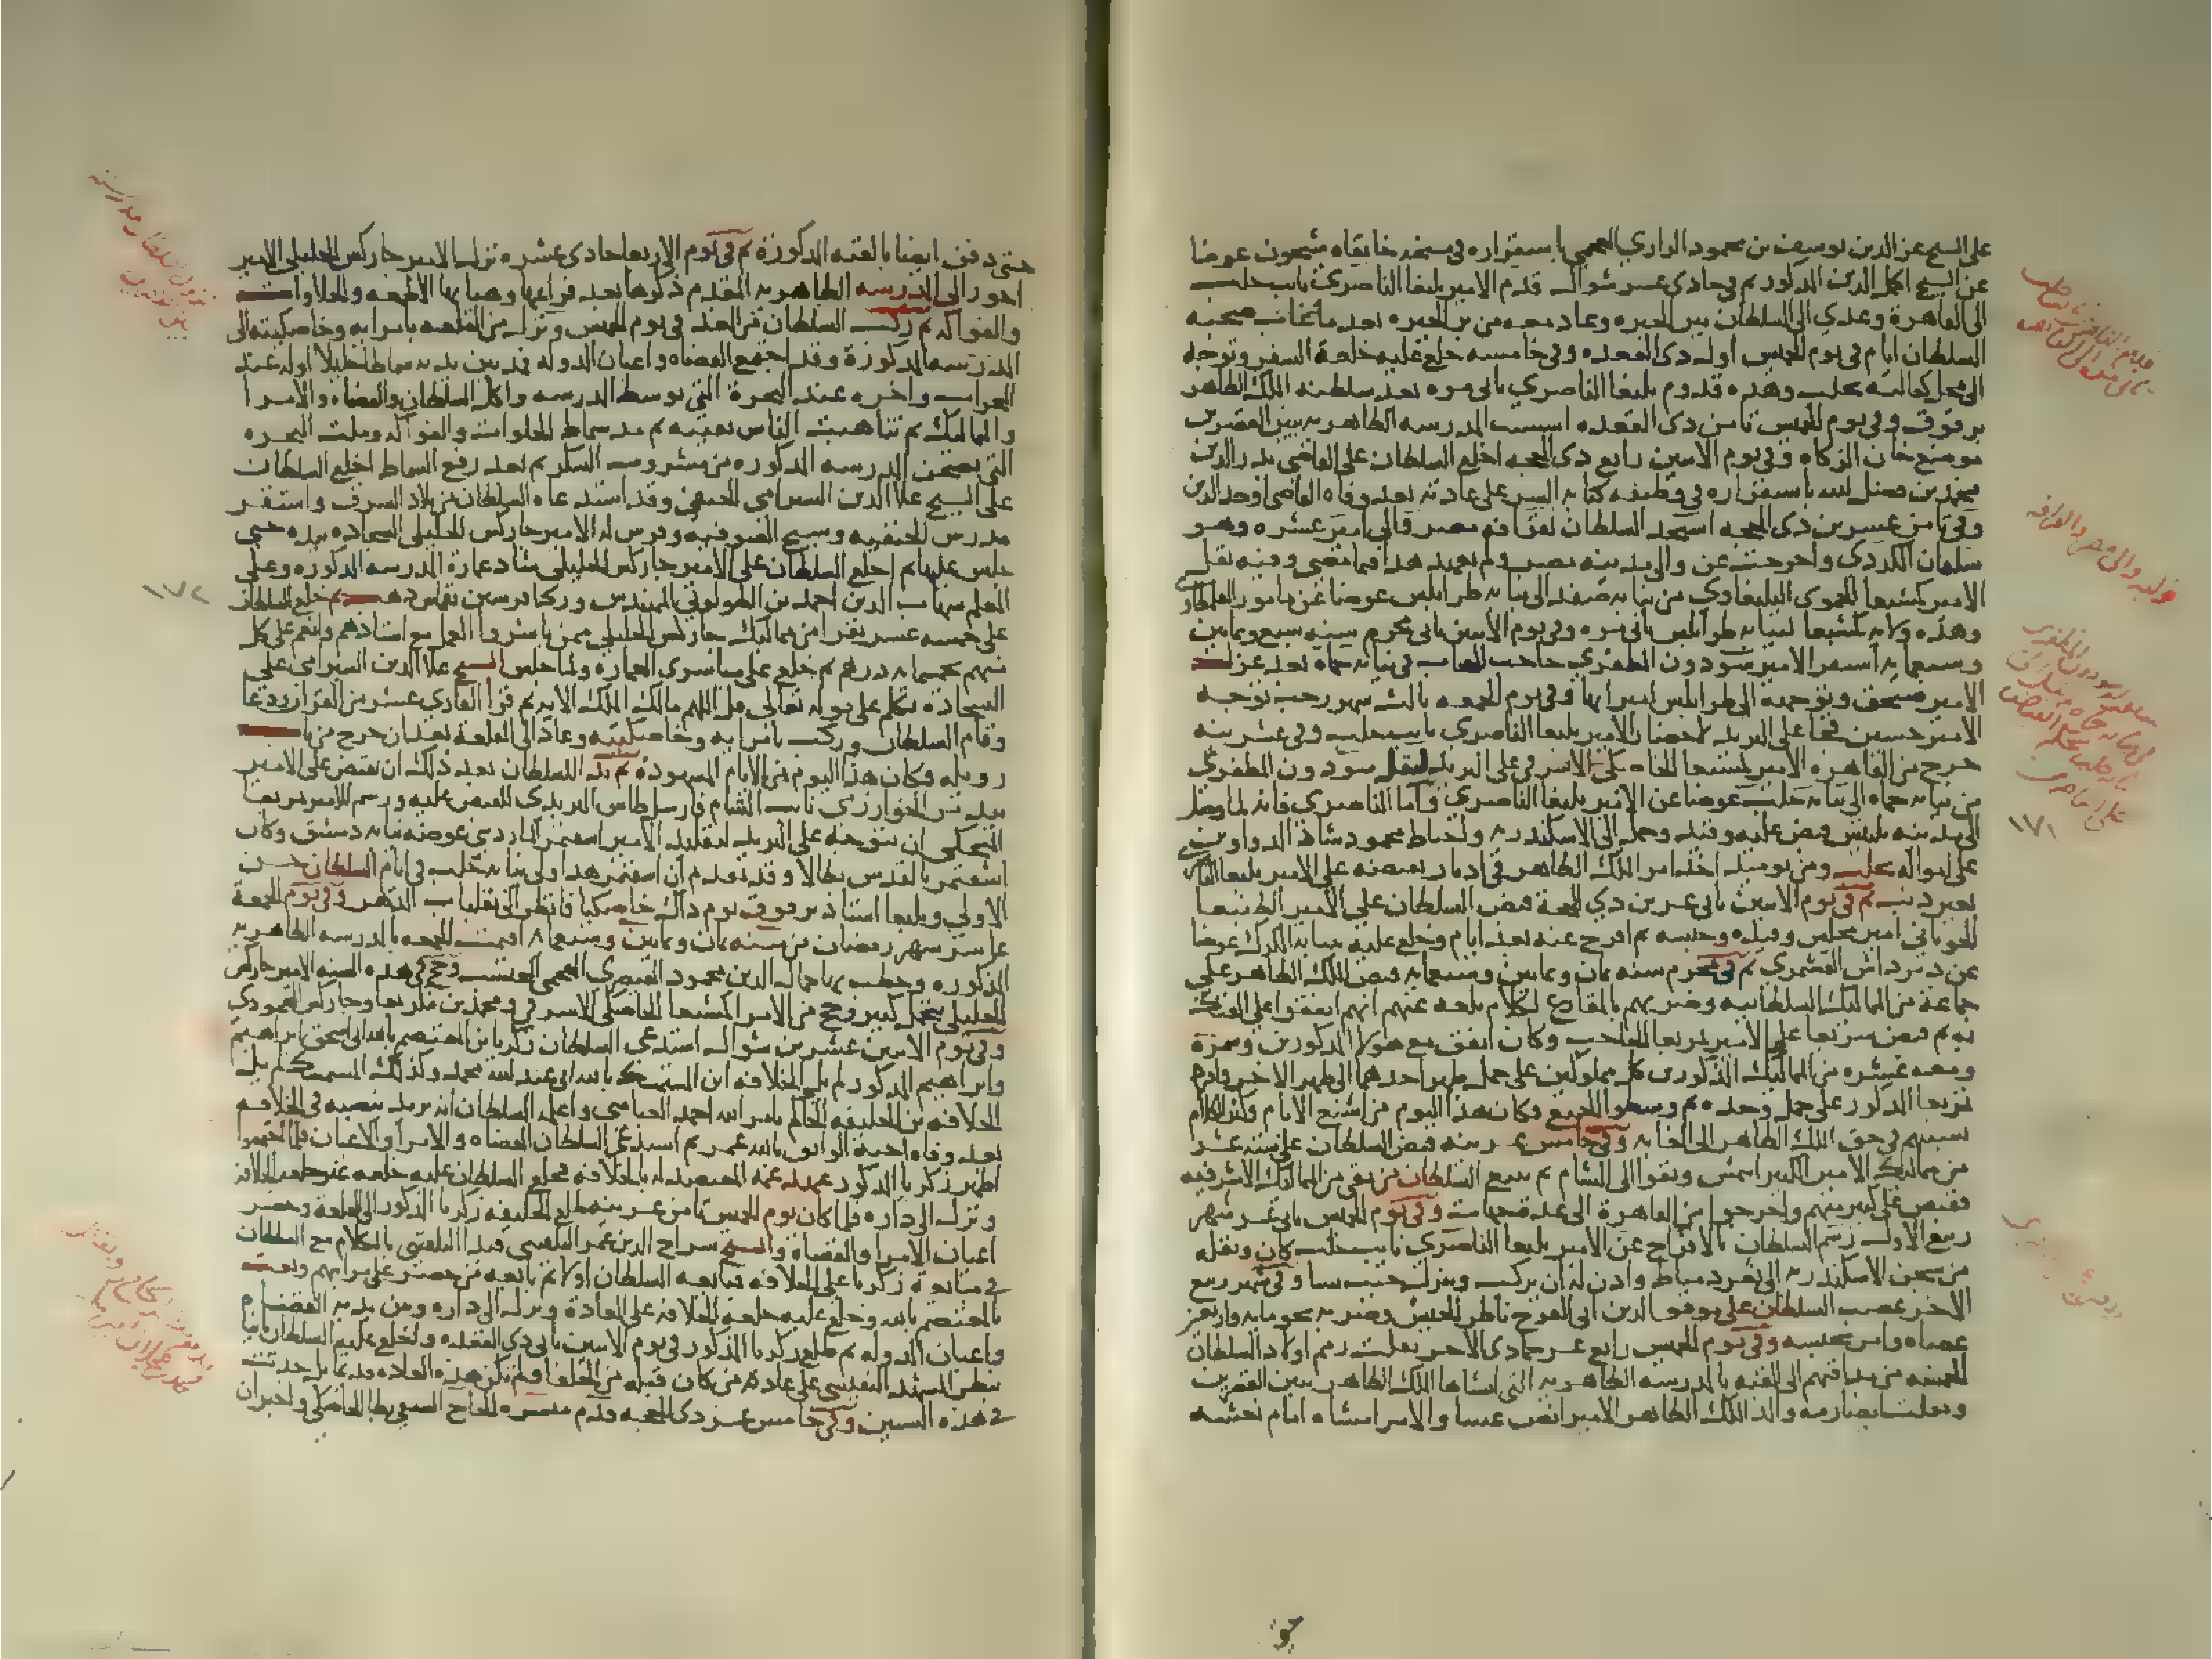 على الشيخ عز الدين يوسف بن محمود الرازي العجمي باستقراره في مشيخه خانقاه شيخون عوضا
عن الشيخ اكمل الدين المذكور ثم في حادى عشر شوال قدم الامير يلبغا الناصري نايب حلب
الى القاهرة وعدي الى السلطان ببر الجيزه وعاد معه من بر الجيزه بعد ما غاب صحبته
السلطان ايام في يوم الخميس اول ذى القعده وفي خامسه خلع عليه خلعة السفر وتوجه
الى محل كفالته بحلب وهذه قدوم يلبغا الناصري ثاني مره بعد سلطنه الملك الظاهر
برقوق وفي يوم الخميس ثامن ذى القعده اسست المدرسه الظاهريه بين القصرين
موضع خان الزكاه وفي يوم الاثنين رابع ذى الحجه اخلع السلطان على القاضى بدر الدين
محمد بن فضل الله باستقراره في وظيفه كتابه السر على عادته بعد وفاه القاضى اوحد الدين
وفي ثامن عشرين ذى الحجه استجد السلطان لقرافه مصر والى امير عشره وهو
سلمان الكردى واخرجت عن والى مدينه مصر ولم يعهد هذا فيما مضى وفيه نقل
الامير كمشبغا الحموى اليلبغاوي من نيابه صفد الى نيابه طرابلس عوضا عن مامور القلمطاوي
وهذه ولايه كمشبغا لنيابه طرابلس ثاني مره وفي يوم الاثنين ثاني محرم سنه سبع وثمانين
وسبعمايه استقر الامير سودون المظفري حاجب الحجاب في نيابه حماه بعد عزل
الامير صنجق وتوجهه الى طرابلس اميرا بها وفي يوم الجمعه ثالث شهر رجب توجه
الامير حسين قجا على البريد لاحضار الامير يلبغا الناصرى نايب حلب وفي عشرينه
خرج من القاهره الامير كمشبغا الخاصكى الاشرفي على البريد لنقل سودون المظفري
من نيابه حماه الى نيابه حلب عوضا عن الامير يلبغا الناصري واما الناصري فانه لما وصل
الى مدينه بلبيس قبض عليه وقيد وحمل الى الاسكندريه واحتاط محمود شاد الدواوين
على امواله بحلب ومن يوميذ اخذ امر الملك الظاهر في ادبار بقبضه على الامير يلبغا الناصرى
بغير ذنب ثم في يوم الاثنين ثاني عشرين ذي الحجة قبض السلطان على الامير الطنبغا
الجوباني امير مجلس وقيده وحبسه ثم افرج عنه بعد ايام وخلع عليه بنيابة الكرك عوضا
عن دمرداش القشتمري ثم في محرم سنه ثمان وثمانين وسبعمايه قبض الملك الظاهر على
جماعة من المماليك السلطانيه وضربهم بالمقارع لكلام بلغه عنهم انهم اتفقوا على الفتك
به ثم قبض على الامير تمربغا الحاجب وكان اتفق مع هولا المذكورين وسمره
ومعه عشره من المماليك المذكورين كل مملوكين على جمل ظهر احدهما الى ظهر الاخر وافرد
تمربغا المذكور على جمل وحده ثم وسطوا الجميع فكان هذا اليوم من اشنع الايام وكثر الكلام
بسببهم في حق الملك الظاهر الى الغايه وفي خامس عشرينه قبض السلطان على سته عشر
من مماليك الامير الكبير ايتمش ونفوا الى الشام ثم تتبع السلطان من بقى من المماليك الاشرفيه
فقبض على كثير منهم واخرجوا من القاهرة الى عده جهات وفي يوم الخميس ثاني عشر شهر
ربيع الاول رسم السلطان بالافراج عن الامير يلبغا الناصري نايب حلب كان ونقله
من سجن الاسكندريه الى ثغر دمياط واذن له ان يركب وينزل حيث شا وفي شهر ربيع
الاخر غضب السلطان على موفق الدين ابى الفرج ناظر الجيش وضربه نحو مايه واربعين
عصاه وامر بحبسه وفي يوم الخميس رابع عشر جمادى الاخر نقلت رمم اولاد السلطان
الخمسه من مدافنهم الى القبه بالمدرسه الظاهريه التي انشاها الملك الظاهر بين القصرين
ونقلت ايضا رمه والد الملك الظاهر الامير انص عشا والامرا مشاه امام نعشه
حتى دفن ايضا بالقبه المذكورة ثم في يوم الاربعا حادى عشره نزل الامير جاركس الخليلى الامير
اخور الى المدرسه الظاهريه المقدم ذكرها بعد فراغها وهيا بها الاطعمه والحلاوات
والفواكه ثم ركب السلطان من الغد في يوم الخميس ونزل من القلعه بامرايه وخاصكيته الى
المدرسه المذكورة وقد اجتمع القضاه واعيان الدوله فمد بين يديه سماطا جليلا اوله عند
المحراب واخره عند البحرة التى بوسط المدرسه واكل السلطان والقضاه والامرا
والمماليك ثم تناهبت الناس بقيته ثم مد سماط الحلوات والفواكه وملت البحره
التى بصحن المدرسه المذكوره من مشروب السكر ثم بعد رفع السماط اخلع السلطان
على الشيخ علا الدين السيرامي الحنفي وقد استدعاه السلطان من بلاد الشرق واستقر
مدرس الحنفيه وشيخ الصوفيه وفرش له الامير جاركس الخليلى السجاده بيده حتى
جلس عليها ثم اخلع السلطان على الامير جاركس الخليلى شاد عمارة المدرسه المذكوره وعلى
المعلم شهاب الدين احمد بن الطولوني المهندس وركبا فرسين بقماش ذهب ثم خلع السلطان
على خمسه عشر نفرا من مماليك جاركس الخليلى ممن باشروا العمل مع استادهم وانعم على كل
منهم بخمسمايه درهم ثم خلع على مباشري العماره ولما جلس الشيخ علا الدين السيرامى على
السجاده تكلم على قوله تعالى قل اللهم مالك الملك الايه ثم قرا القاري عشر من القران ودعا
وقام السلطان وركب بامرايه وخاصكيته وعاد الى القلعة بعد ان خرج من باب
زويله فكان هذا اليوم من الايام المشهودة ثم بدا للسلطان بعد ذلك ان يقبض على الامير
بيدمر الخوارزمى نايب الشام فارسل طاس البريدى للقبض عليه ورسم للامير تمربغا
المنجكى ان يتوجه على البريد لتقليد الامير اشقتمر الماردينى عوضه نيابه دمشق وكان
اشقتمر بالقدس بطالا وقد تقدم ان اشقتمر هذا ولى نيابه حلب في ايام السلطان حسن
الاولى ويلبغا استاذ برقوق يوم ذاك خاصكيا فانظر الى تقلبات الدهر وفي يوم الجمعة
عاشر شهر رمضان من سنه ثمان وثمانين وسبعمايه اقيمت الجمعه بالمدرسه الظاهريه
المذكوره وخطب بها جمال الدين محمود القيصرى العجمي المحتسب وحج في هذه السنه الامير جاركس
الخليلى بتجمل كبير وحج من الامرا كمشبغا الخاصكى الاشرفي ومحمد بن تنكزبغا وجاركس المحمودى
وفي يوم الاثنين عشرين شوال استدعى السلطان زكريا بن المعتصم بالله ابى اسحق ابراهيم
وابراهيم المذكور لم يلى الخلافه ابن المستمسك بالله ابى عبد الله محمد وكذلك المستمسك لم يل
الخلافه بن الخليفه الحاكم بامر الله احمد العباسى واعلمه السلطان انه يريد ينصبه في الخلافه
بعد وفاه اخيه الواثق بالله عمر ثم استدعى السلطان القضاه والامرا والاعيان فلما اجتمعوا
اظهر زكريا المذكور عهد عمه المعتضد له بالخلافه فخلع السلطان عليه خلعه غير خلعه الخلافة
ونزل الى داره فلما كان يوم الخميس ثامن عشرينه طلع الخليفه زكريا المذكور الى القلعة وحضر
اعيان الامرا والقضاه والشيخ سراج الدين عمر البلقينى فبدا البلقينى بالكلام مع السلطان
في مبايعة زكريا على الخلافه فبايعه السلطان اولا ثم بايعه من حضر على مراتبهم ونعت
بالمعتصم بالله وخلع عليه خلعه الخلافه على العادة ونزل الى داره وبين يديه القضاه
واعيان الدوله ثم طلع زكريا المذكور في يوم الاثنين ثاني ذى القعده واخلع عليه السلطان ثانيا
بنظر المشهد النفيسى على عادة من كان قبله من الخلفا ولم تكن هذه العاده قديما بل حدثت
في هذه السنين وفي خامس عشر ذى الحجه قدم مبشر الحاج السيفى بطا الخاصكى واخبر ان
١٧١
١٧٢